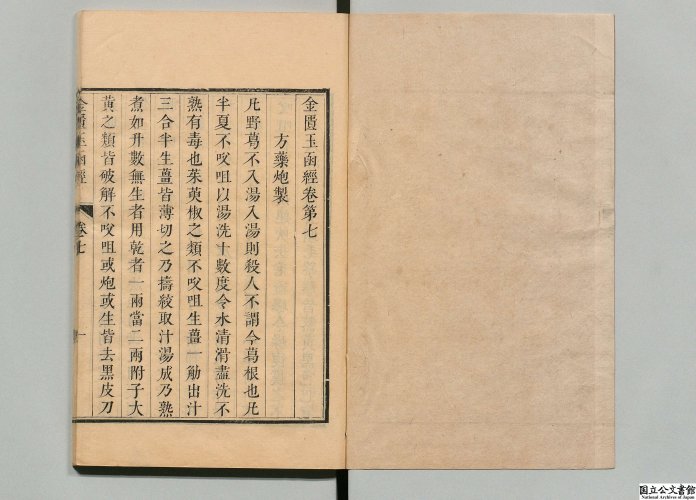 金匱玉函經卷第七
方藥炮製
凡野葛不入湯入湯則殺人不謂今葛根也凡
半夏不㕮咀以湯洗十數度令水清滑盡洗不
熟有毒也茱萸椒之類不㕮咀生薑一觔出汁
三合半生薑皆薄切之乃擣絞取汁湯成乃熟
煮如升數無生者用乾者一兩當二兩附子大
黃之類皆破解不㕮咀或炮或生皆去黑皮刀
金匱玉函經 卷七 一
国立公文書館
National Archives of Japan